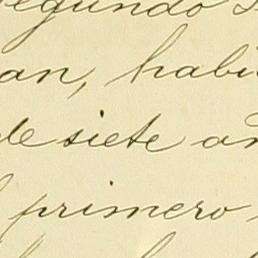 segundo
an, habi
de siete añ
primero